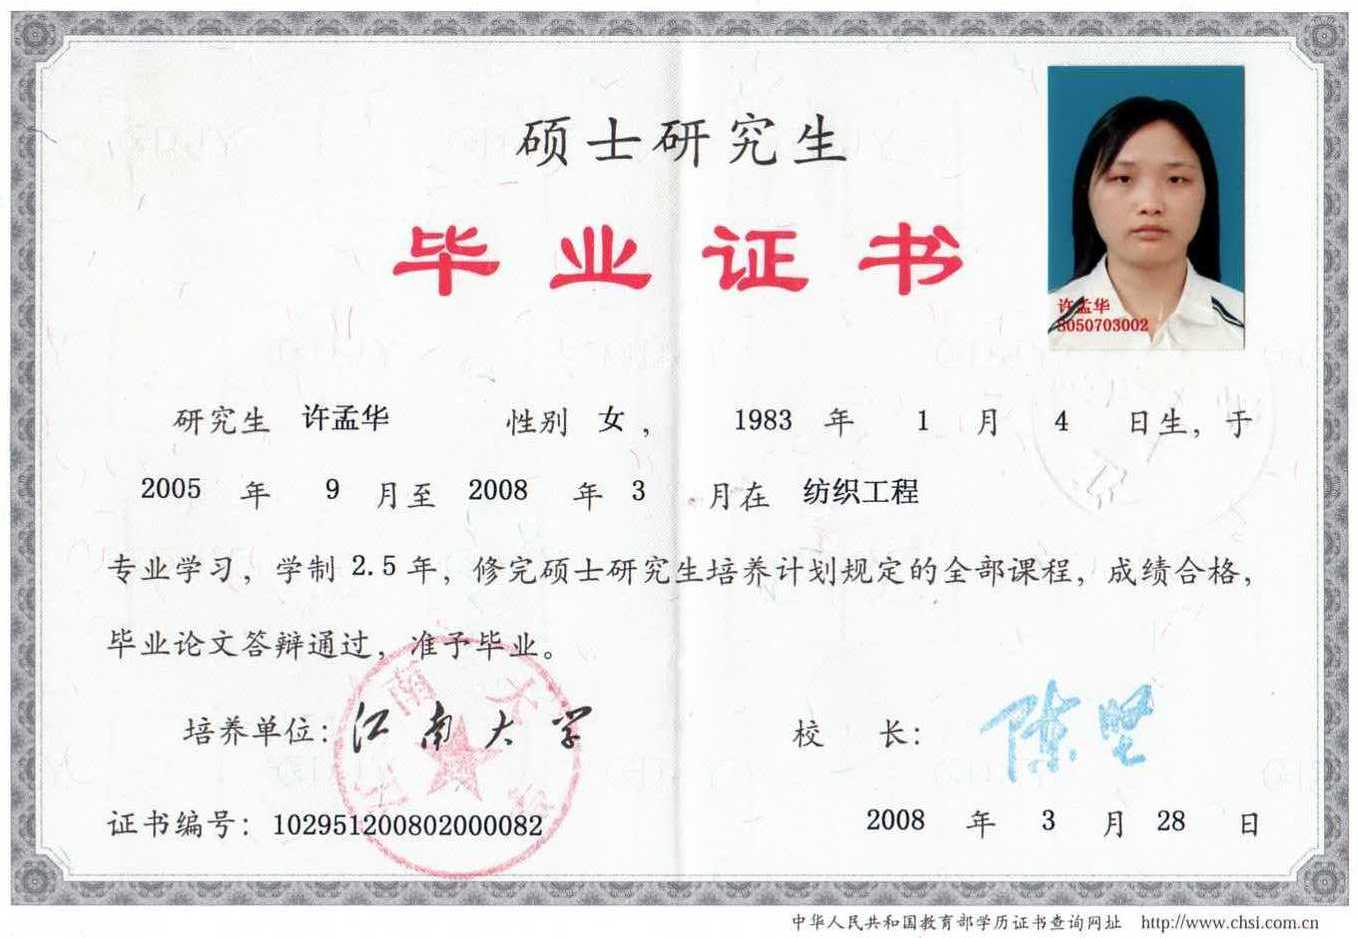 硕士研究生
毕业证书
许孟华
S050703002
研究生 许孟华 性别 女， 1983 年 1 月 4 日生，于
2005 年 9 月至 2008 年 3 月在 纺织工程
专业学习，学制 2.5 年，修完硕士研究生培养计划规定的全部课程，成绩合格，
毕业论文答辩通过，准予毕业。
培养单位：江南大学 校 长：陈坚
证书编号：102951200802000082 2008 年 3 月 28 日
中华人民共和国教育部学历证书查询网址 http://www.chsi.com.cn